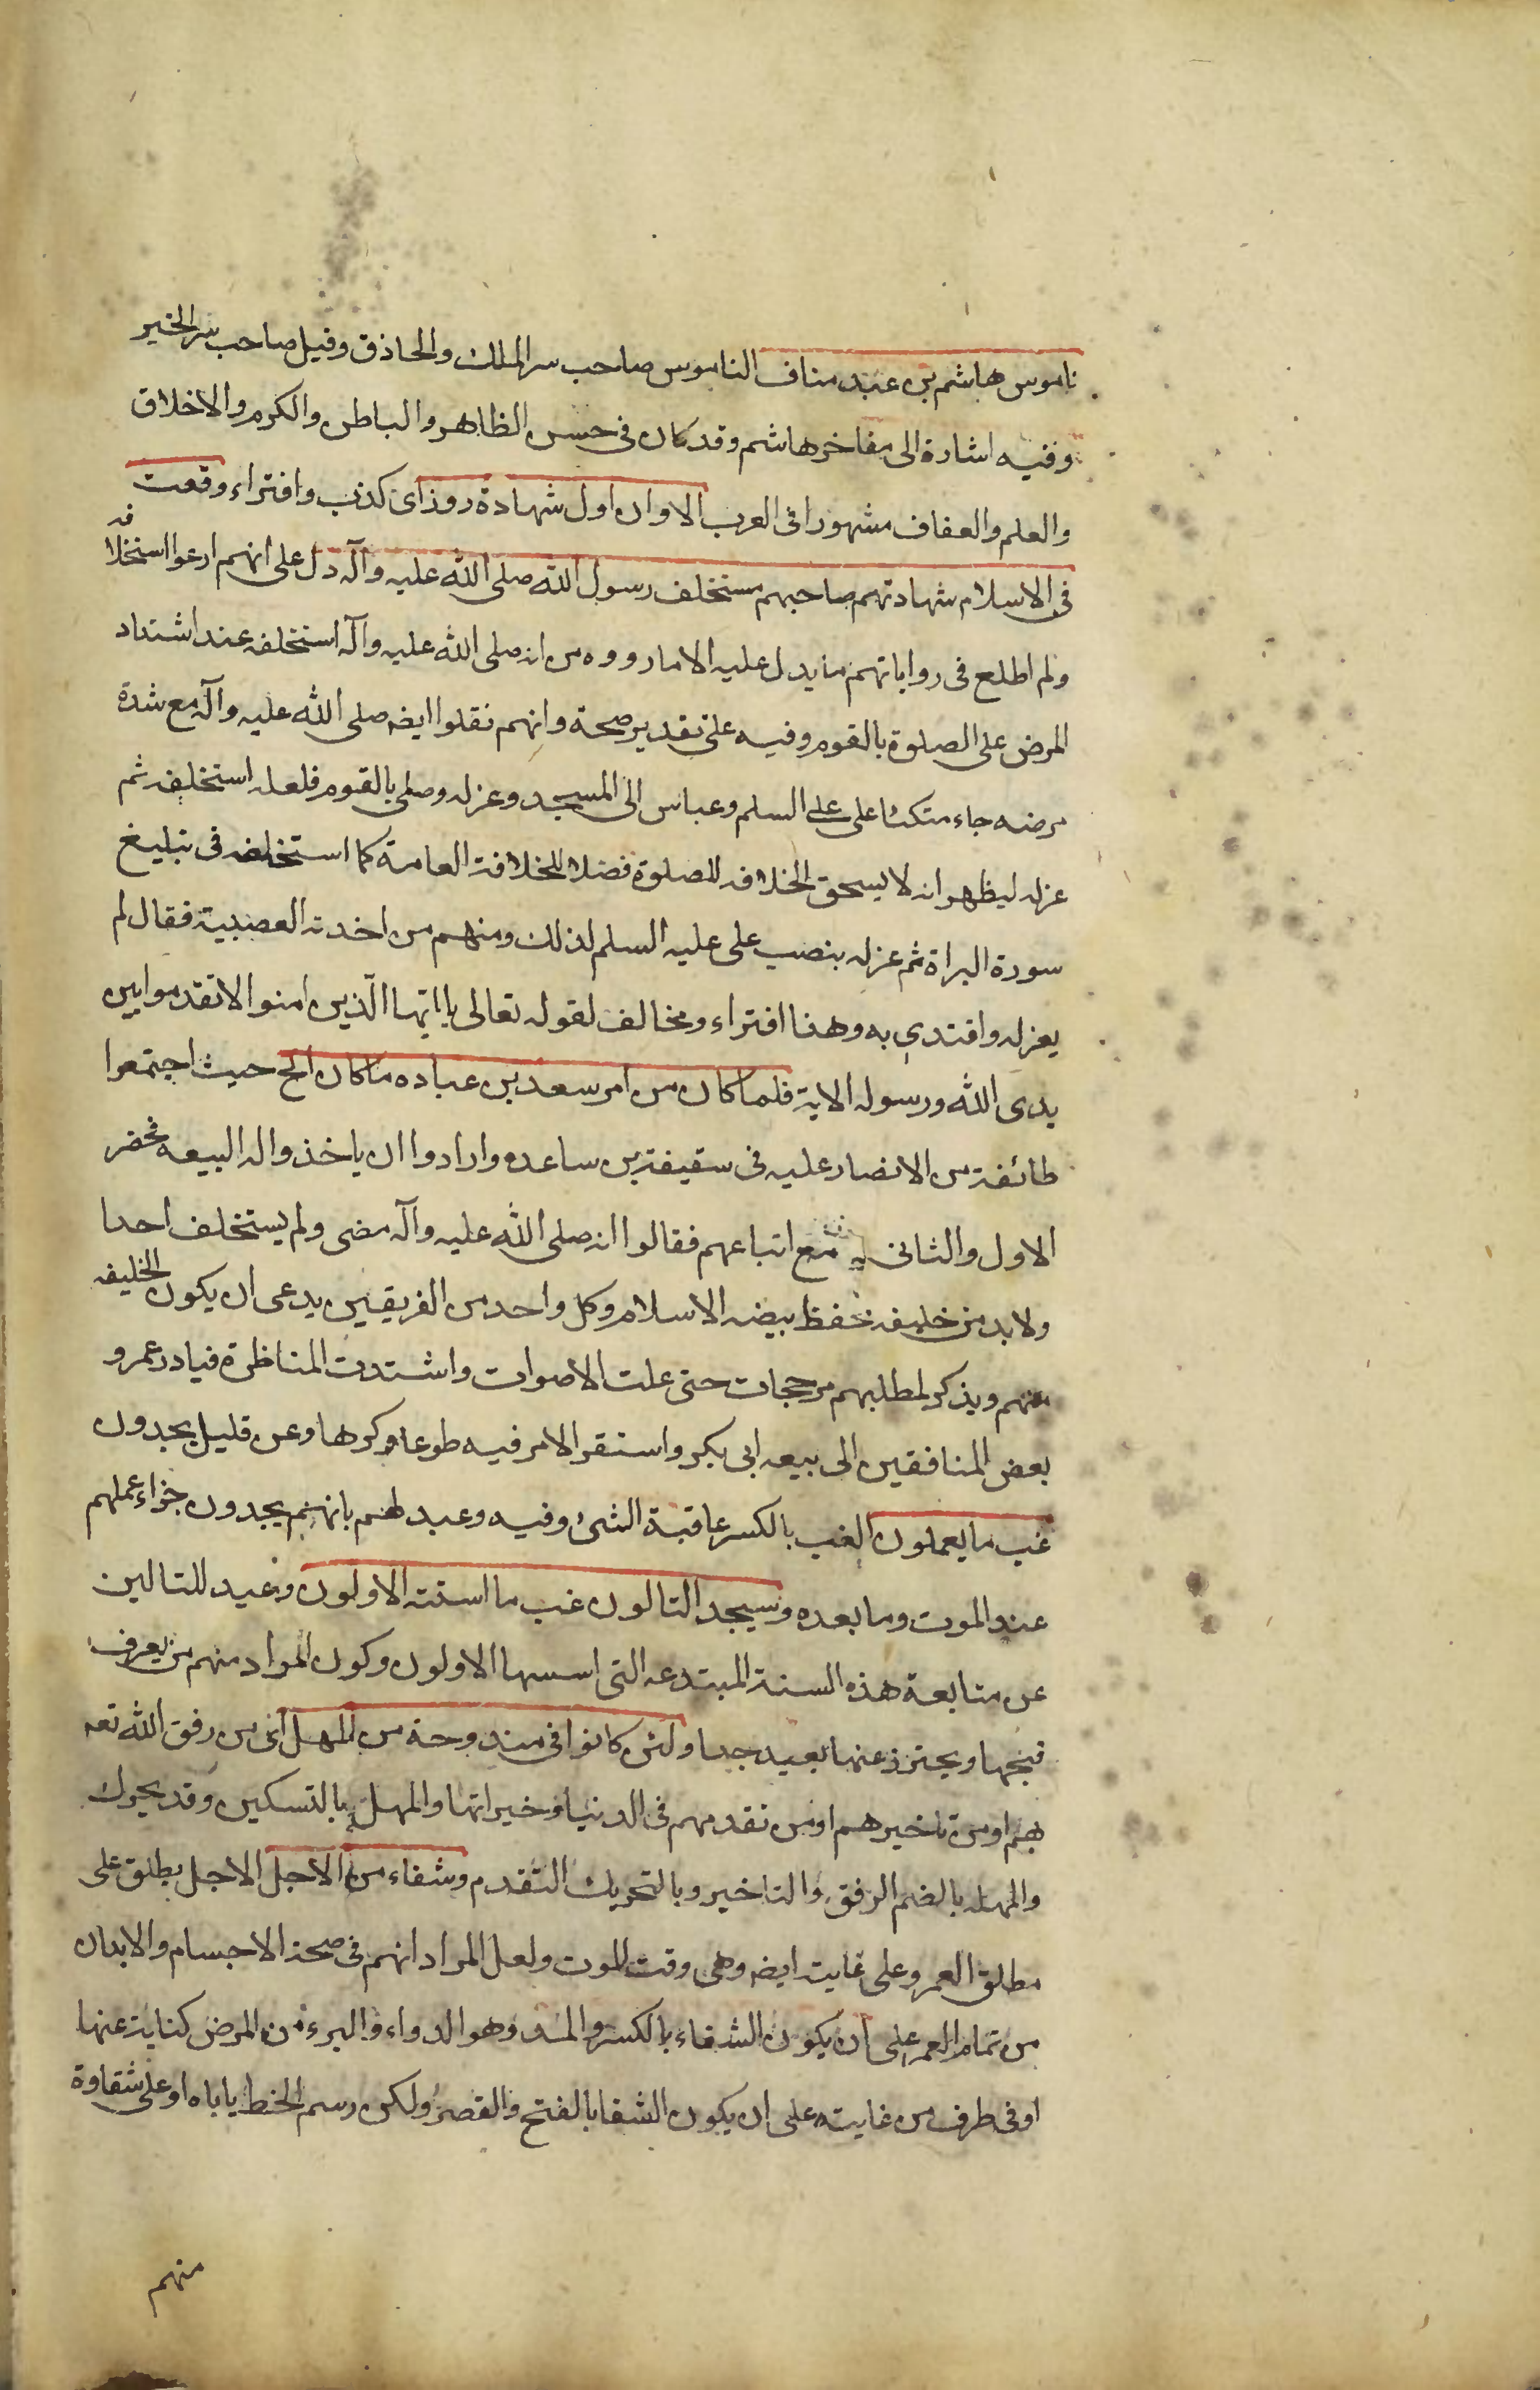 ناموس هاشم بن عبد مناف الناموس صاحب سر الملك والحاذق وقيل صاحب سر الخير
وفيه اشارة الى مفاخر هاشم وقد كان فى حسن الظاهر والباطن والكرم والاخلاق
والعلم والعفاف مشهورا فى العرب الاوان اول شهادة زور اى كذب وافتراء وقعت
فى الاسلام شهادتهم صاحبهم مستخلف رسول الله صلى الله عليه وآله دل على انهم ادعوا استخلافه
ولم اطلع فى رواياتهم ما يدل عليه الا مارووه من انه صلى الله عليه وآله استخلفه عند اشتداد
المرض على الصلوة بالقوم وفيه على تقدير صحة وانهم نقلوا ايضه صلى الله عليه وآله مع شدة
مرضه جاء متكئا على على السلم وعباس الى المسجد وعزله وصلى بالقوم فلعله استخلفه ثم
عزله ليظهر انه لا يسحق الخلافه للصلوة فضلا للخلافة العامة كما استخلفه فى تبليغ
سورة البراة ثم عزله بنصب على عليه السلم لذلك ومنهم من اخذته العصبية فقال لم
يعزله واقتدى به وهذا افتراء ومخالف لقوله تعالى يا ايها الذين امنوا لا تقدموا بين
يدى الله ورسوله الاية فلما كان من امر سعد بن عباده ما كان الخ حيث اجتمعوا
طائفة من الانصار عليه فى سقيفة بن ساعده وارادوا ان ياخذوا له البيعه فحضر
الاول والثانى مع اتباعهم فقالوا انه صلى الله عليه وآله مضى ولم يستخلف احدا
ولابد من خليفه يحفظ بيضه الاسلام وكل واحد من الفريقين يدعى ان يكون الخليفه
منهم ويذكر لمطلبهم مرجحات حتى علت الاصوات واشتدت المناظرة فبادر عمر و
بعض المنافقين الى بيعه ابى بكر واستقر الامر فيه طوعا وكرها وعن قليل يجدون
غب ما يعملون الغب بالكسر عاقبة الشئ وفيه وعيد لهم بانهم يجدون جزاء عملهم
عند الموت وما بعده وسيجد التالون غب ما اسنته الاولون وعيد للتالين
عن متابعة هذه السنة المبتدعه التى اسسها الاولون وكون المراد منهم من يعرف
قبحها ويحترز عنها بعيد جدا ولئن كانوا فى مندوحة من المهل اى من رفق الله تعه
بهم او من تاخيرهم او من تقدمهم فى الدنيا وخيراتها والمهل بالتسكين وقد يحرك
والمهله بالضم الرفق والتاخير وبالتحريك التقدم وشفاء من الاجل الاجل يطلق على
مطلق العمر وعلى غايته ايضه وهى وقت الموت ولعل المراد انهم فى صحة الاجسام والابدان
من تمام العمر على ان يكون الشفاء بالكسر والمد وهو الدواء والبرء من المرض كناية عنها
او فى طرف من غايته على ان يكون الشفا بالفتح والقصر ولكن رسم الخط ياباه او على شقاوة
منهم